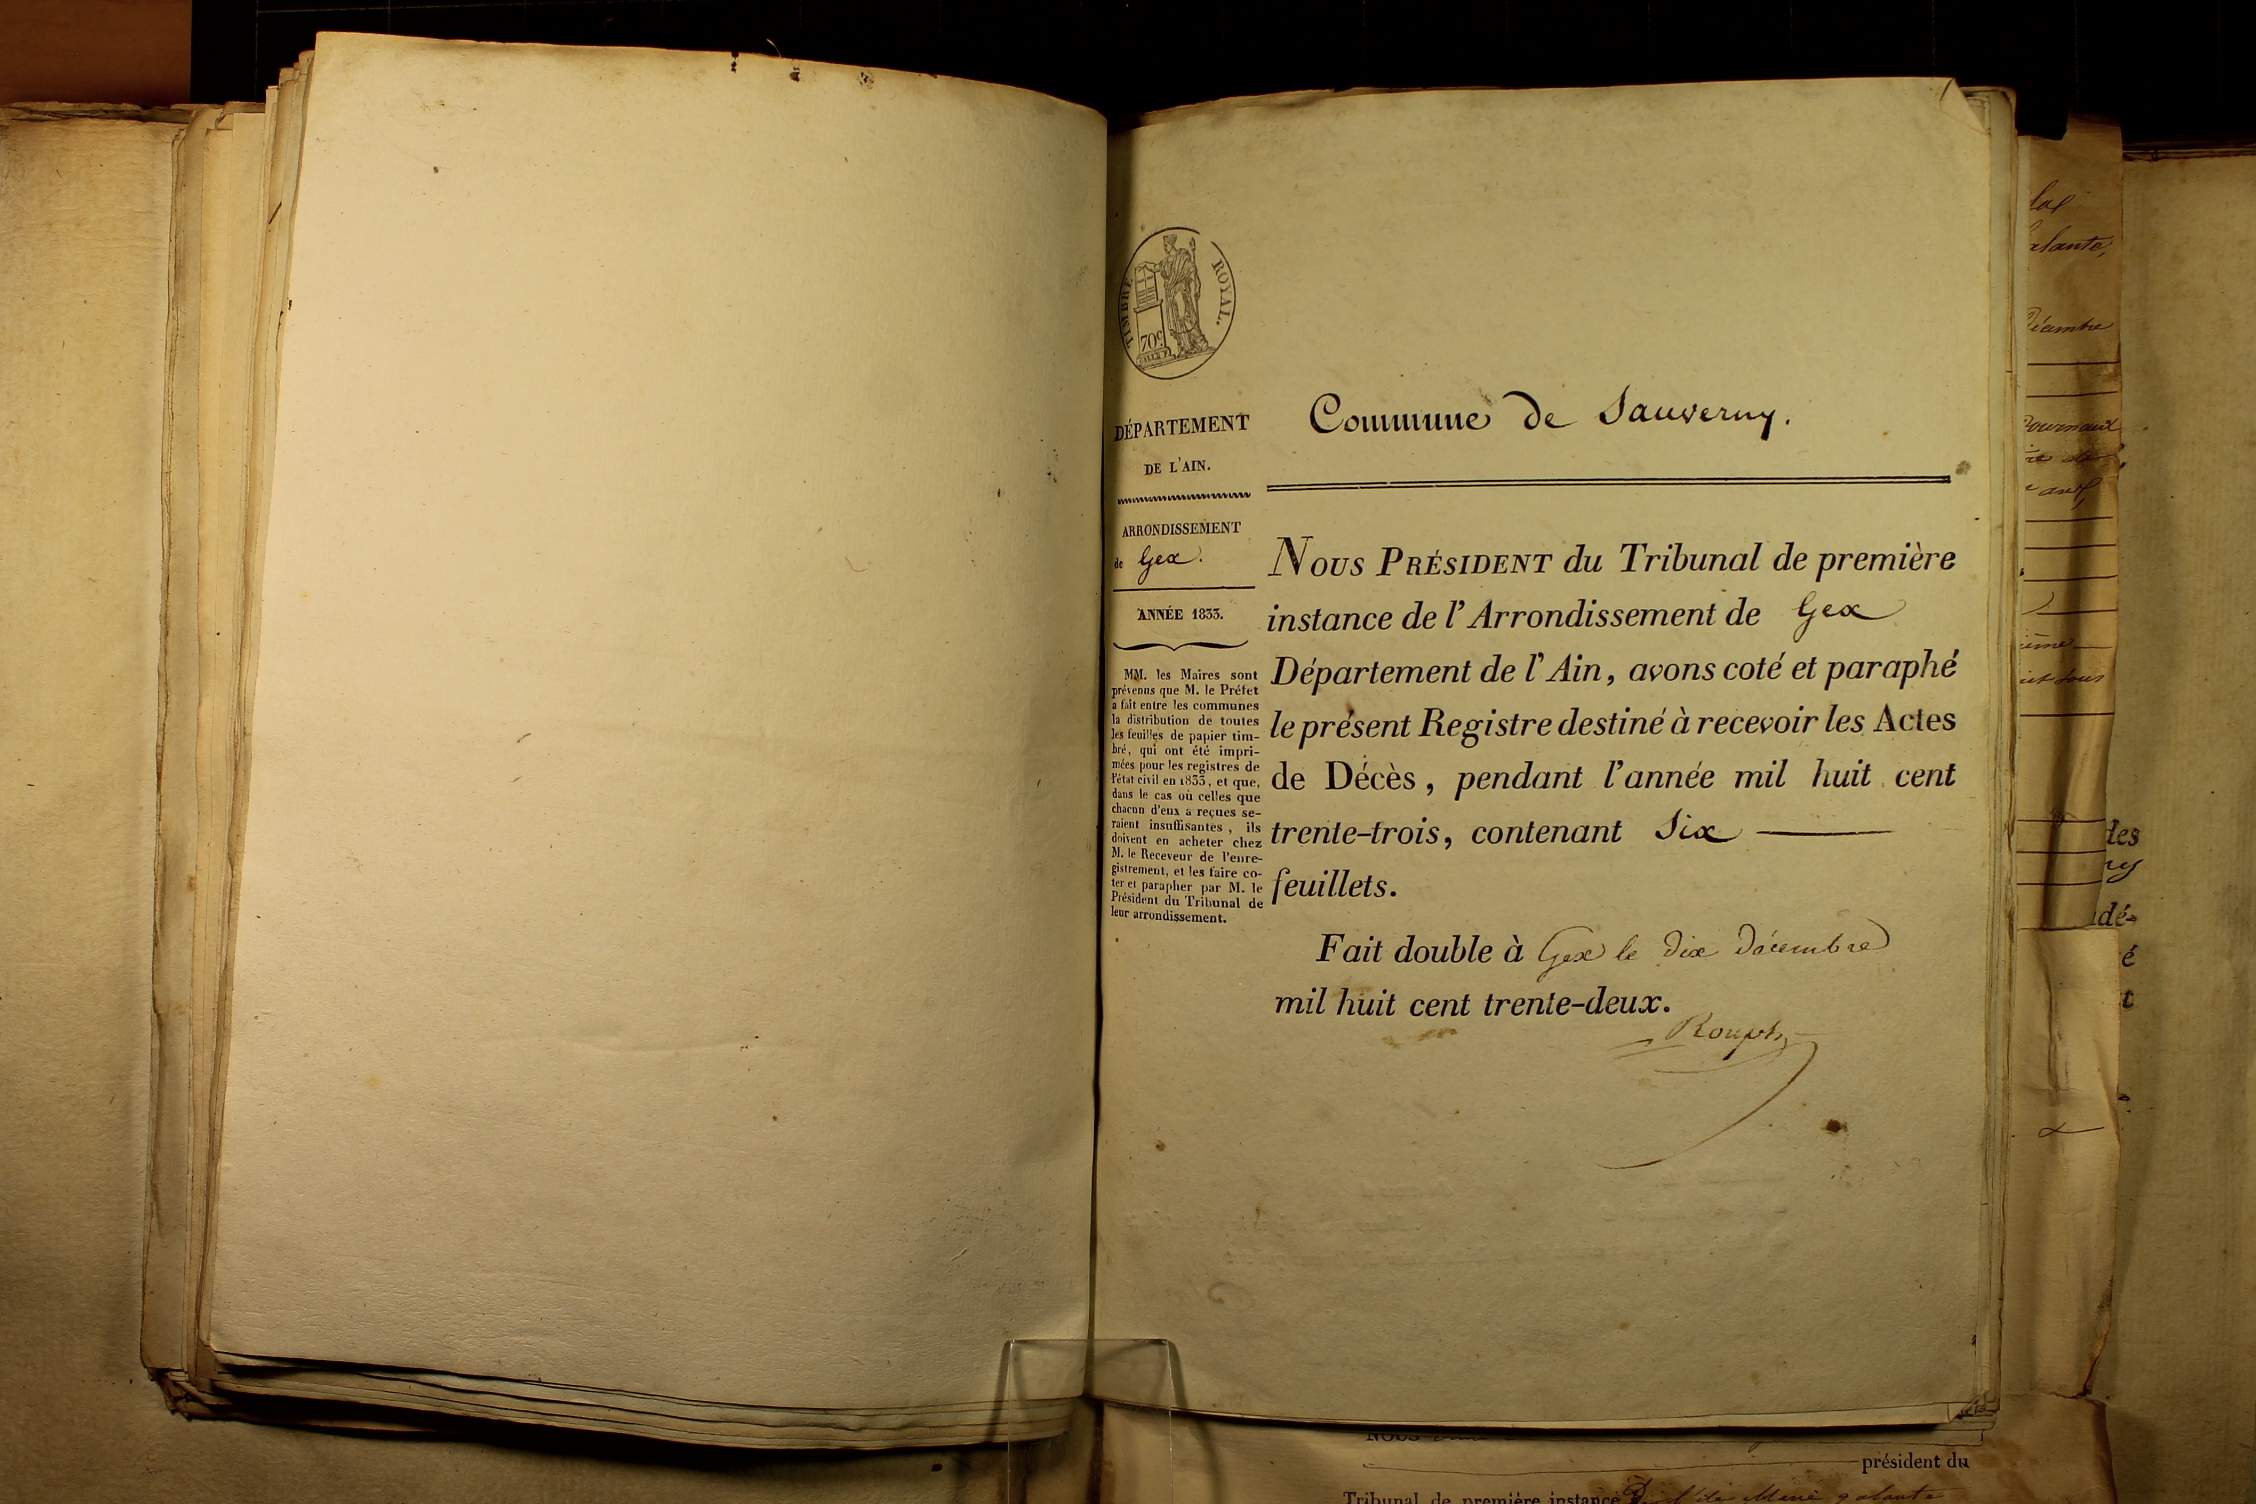 TIMBRE ROYAL.
70c
DÉPARTEMENT
DE L'AIN.
ARRONDISSEMENT
de Gex.
ANNÉE 1833.
MM. les Maires sont
prévenus que M. le Préfet
a fait entre les communes
la distribution de toutes
les feuilles de papier tim-
bré, qui ont été impri-
mées pour les registres de
l'état civil en 1833, et que,
dans le cas où celles que
chacun d'eux a reçues se-
raient insuffisantes, ils
doivent en acheter chez
M. le Receveur de l'enre-
gistrement, et les faire co-
ter et parapher par M. le
Président du Tribunal de
leur arrondissement.
Commune de Sauverny.
NOUS PRÉSIDENT du Tribunal de première
instance de l'Arrondissement de Gex
Département de l'Ain, avons coté et paraphé
le présent Registre destiné à recevoir les Actes
de Décès, pendant l'année mil huit cent
trente-trois, contenant Six
feuillets.
Fait double à Gex le dix Décembre
mil huit cent trente-deux.
Rouph
alante,
Décembre
des
dé-
é
t
président du
Tribunal de première instance